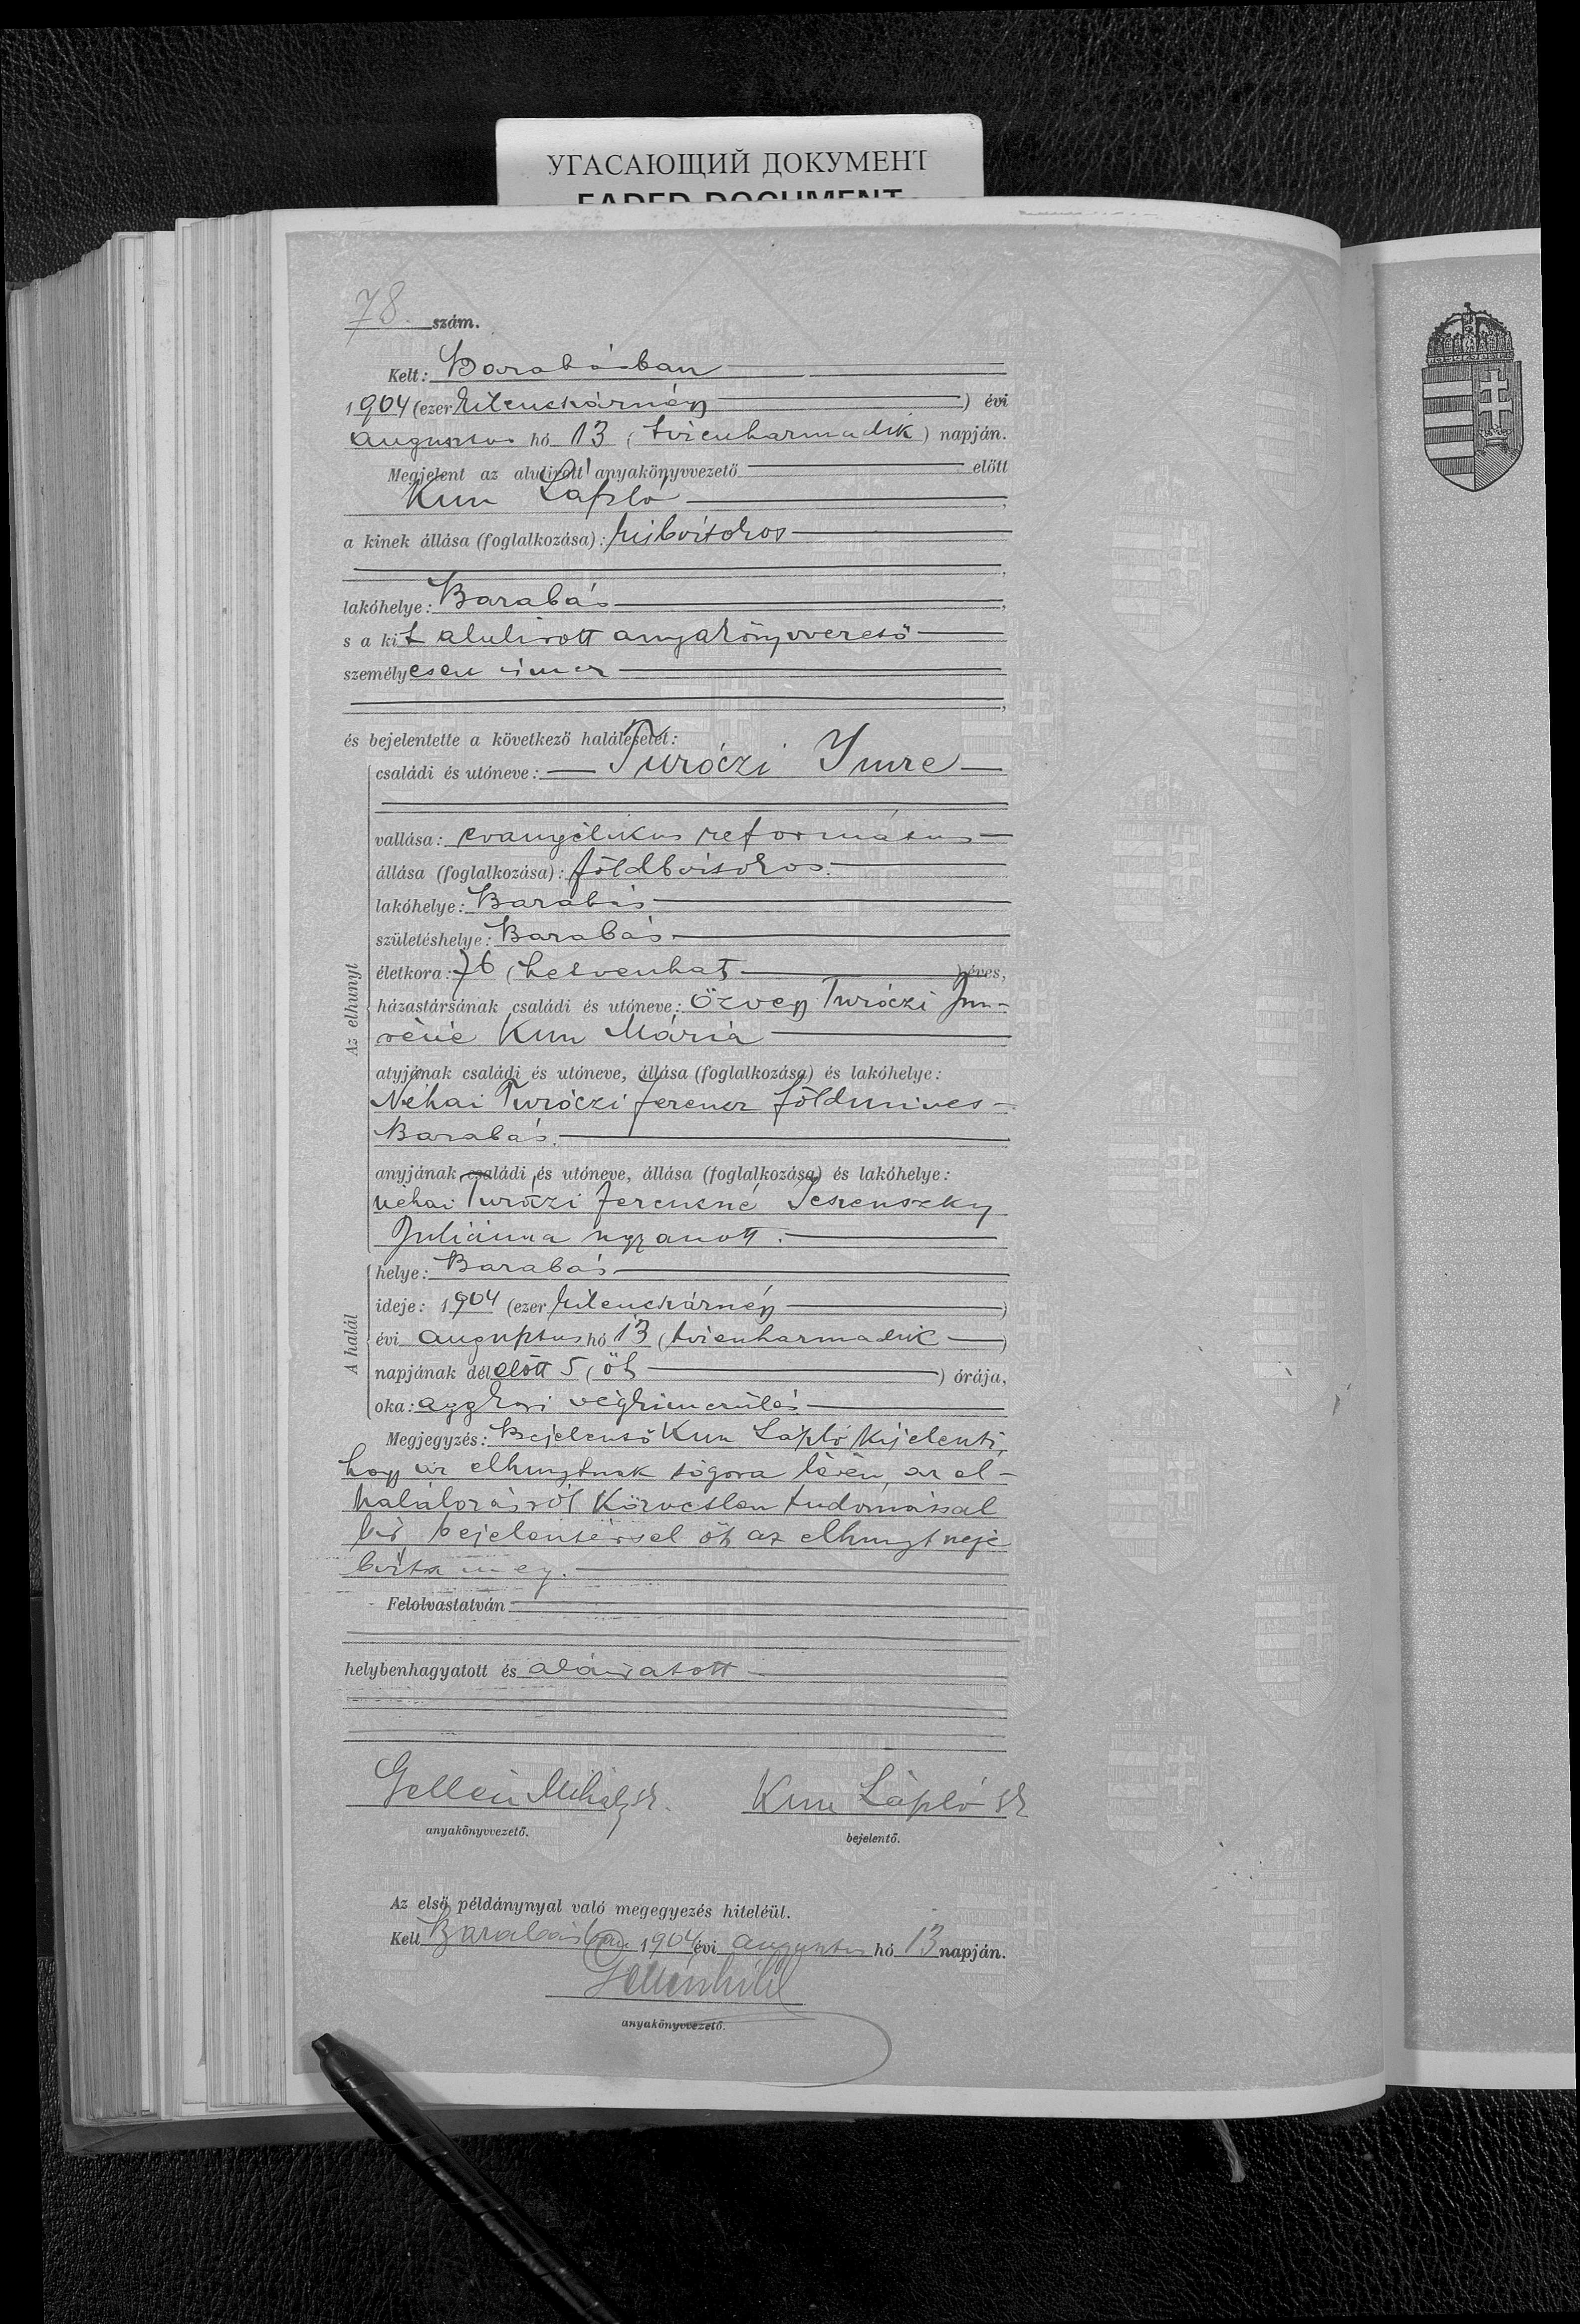 УГАСАЮЩИЙ ДОКУМЕНТ
FADED DOCUMENT
78. szám.
Kelt: Barabásban
1904 (ezer kilenczszáznégy) évi
augusztus hó 13 (tizenharmadik) napján.
Megjelent az alulirott anyakönyvvezető előtt
Kun László
a kinek állása (foglalkozása): kisbirtokos
lakóhelye: Barabás
s a kit alulirott anyakönyvvezető
személyesen ismer
és bejelentette a következő halálesetet:
Az elhunyt
családi és utóneve: Turóczi Imre
vallása: evangélikus református
állása (foglalkozása): földbirtokos.
lakóhelye: Barabás
születéshelye: Barabás
életkora: 76 (hetvenhat) éves,
házastársának családi és utóneve: özvegy Turóczi Im-
réné Kun Mária
atyjának családi és utóneve, állása (foglalkozása) és lakóhelye:
Néhai Turóczi Ferencz földmives
Barabás.
anyjának családi és utóneve, állása (foglalkozása) és lakóhelye:
néhai Turóczi Ferenczné Jeszenszky
Juliánna ugyanott.
A halál
helye: Barabás
ideje: 1904 (ezer kilenczszáznégy)
évi augusztus hó 13 (tizenharmadik)
napjának délelőtt 5 (öt) órája,
oka: aggkori végkimerülés.
Megjegyzés: Bejelentő Kun László kijelenti,
hogy az elhunytnak sógora lévén, az el-
halálozásról közvetlen tudomással
bir, bejelentéssel őt az elhunyt neje
bizta meg.
Felolvastatván
helybenhagyatott és aláiratott
Gellén Mihály sk. Kun László sk
anyakönyvvezető. bejelentő.
Az első példánynyal való megegyezés hiteléül.
Kelt Barabásban 1904 évi augusztus hó 13 napján.
Gellén Mihály
anyakönyvvezető.